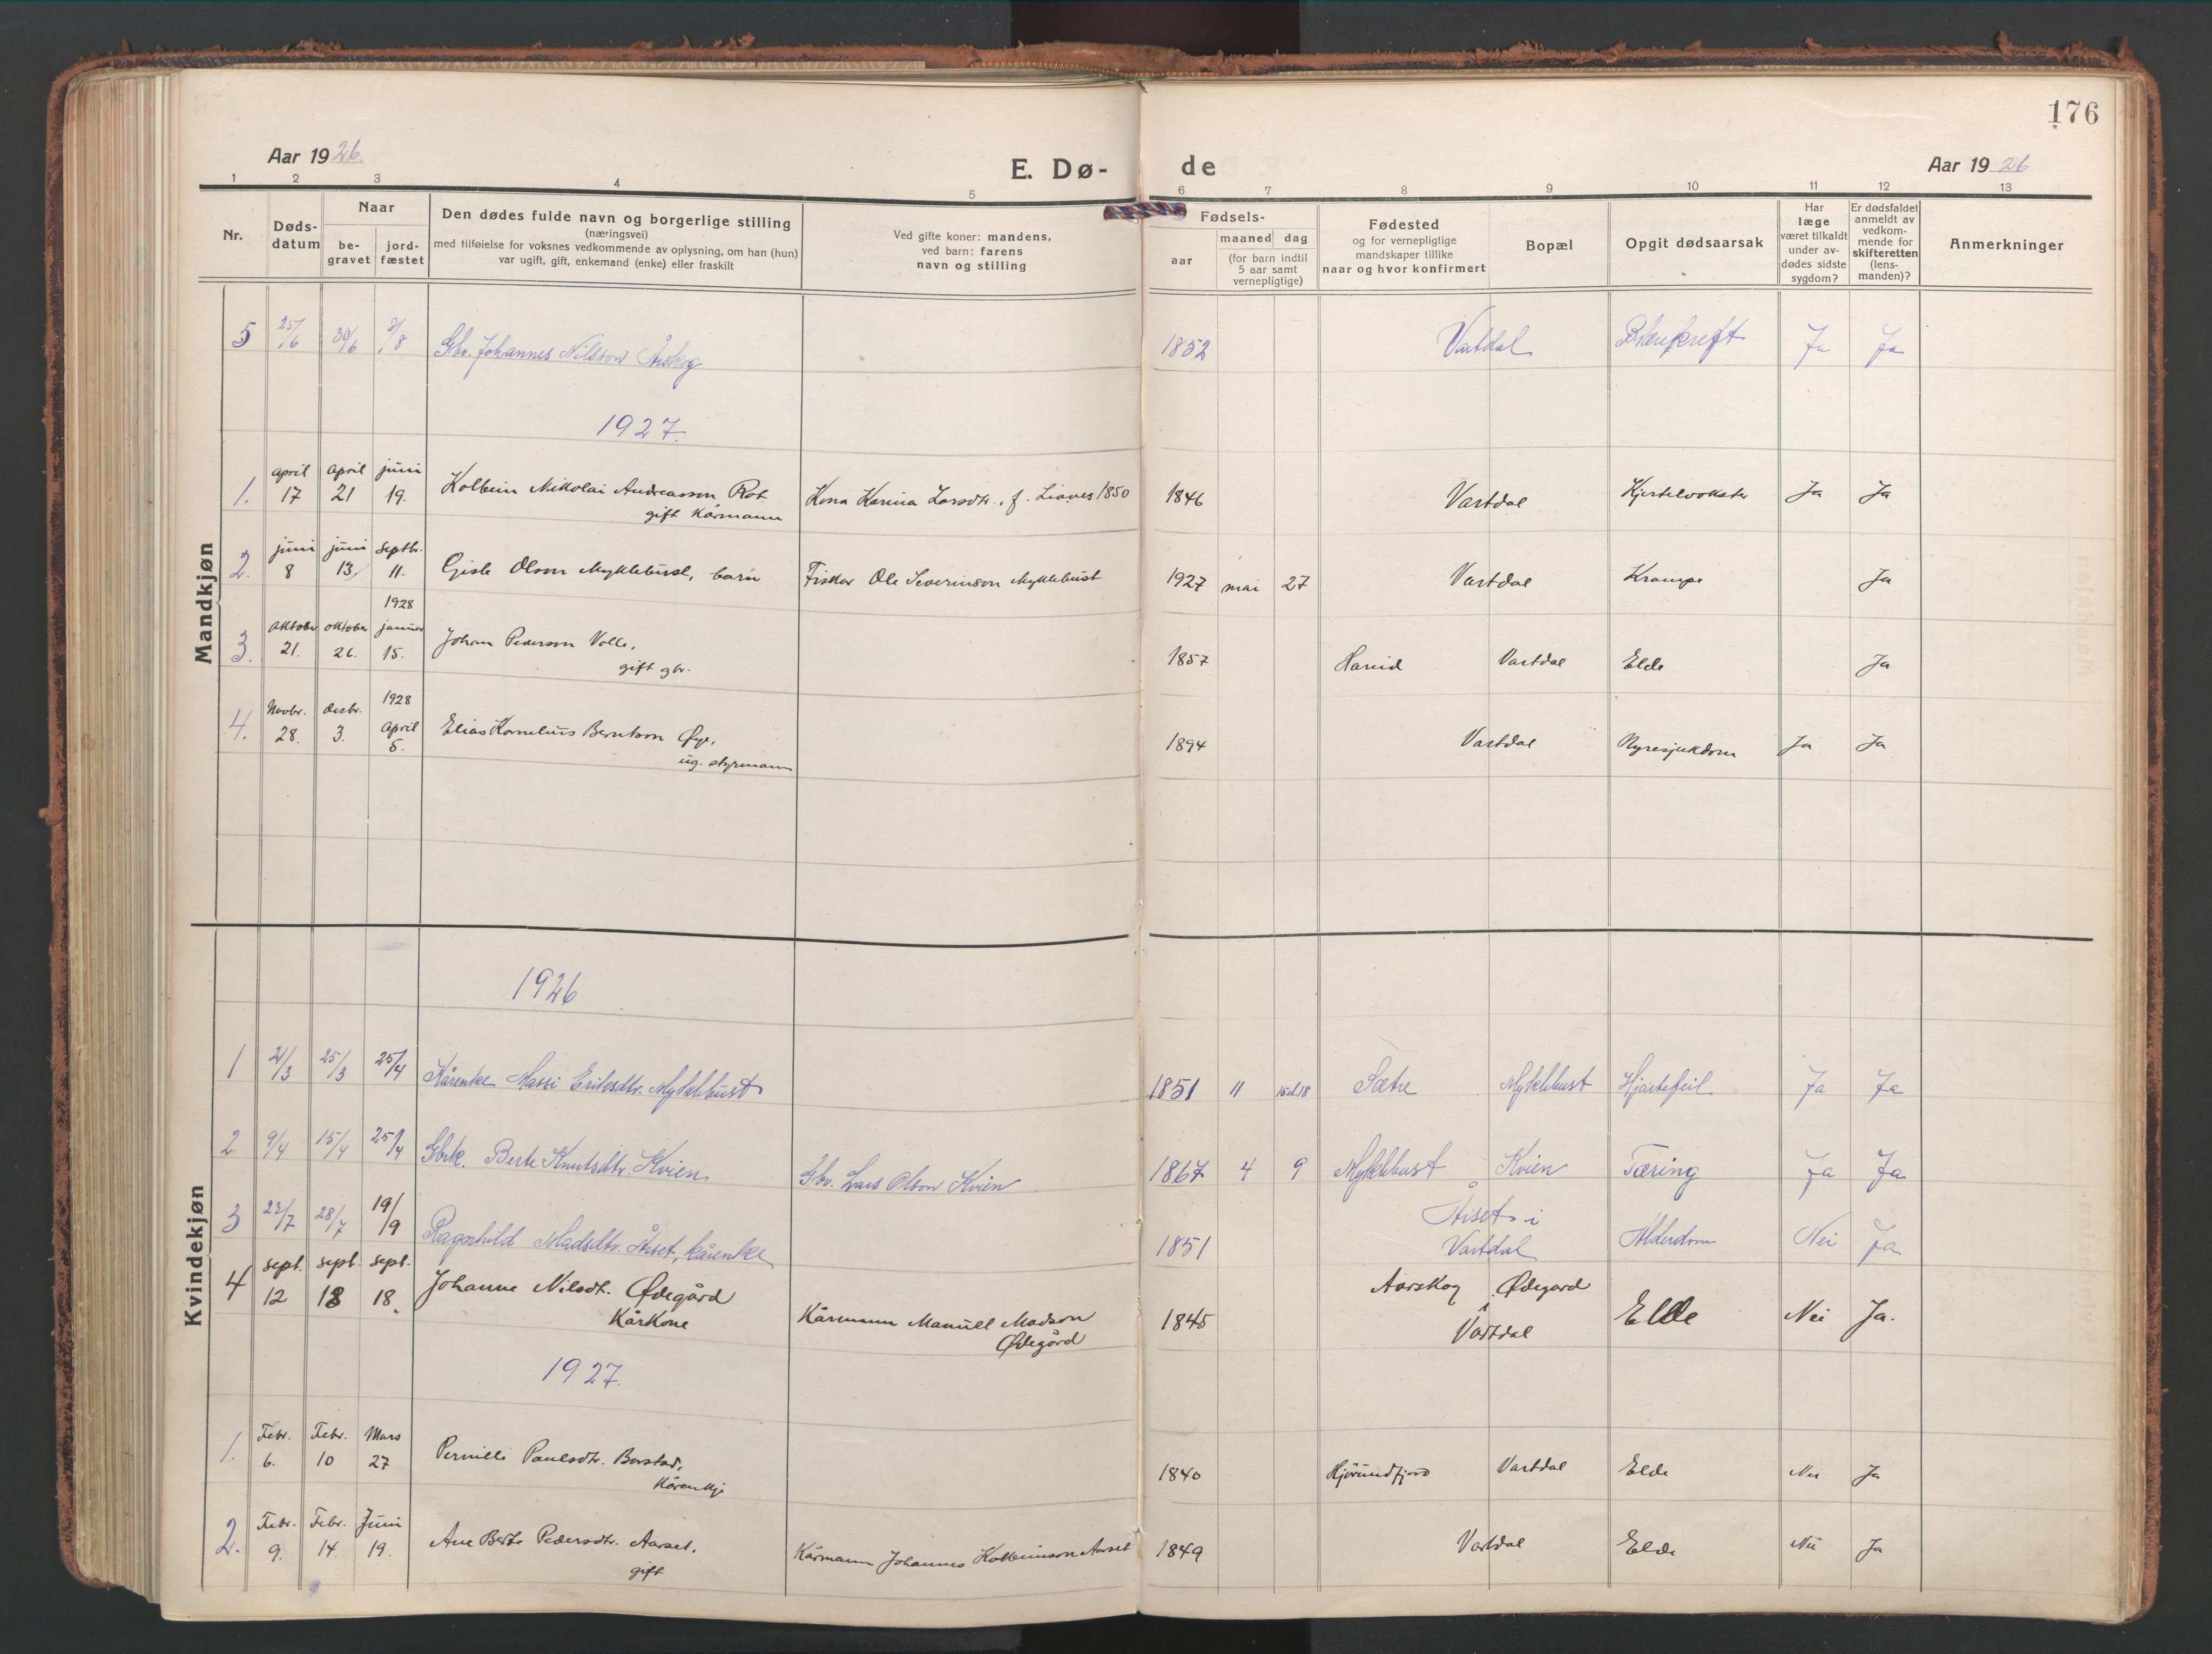 176
Aar 1926
E. Dø-
de
Aar 1926
1 2 3 4 5 6 7 8 9 10 11 12 13
Nr.
Døds-
datum
Naar
be-
gravet
jord-
fæstet
Den dødes fulde navn og borgerlige stilling
(næringsvei)
med tilføielse for voksnes vedkommende av oplysning, om han (hun)
var ugift, gift, enkemand (enke) eller fraskilt
Ved gifte koner: mandens,
ved barn: farens
navn og stilling
Fødsels-
aar
maaned dag
(for barn indtil
5 aar samt
vernepligtige)
Fødested
og for vernepligtige
mandskaper tillike
naar og hvor konfirmert
Bopæl
Opgit dødsaarsak
Har
læge
været tilkaldt
under av-
dødes sidste
sygdom?
Er dødsfaldet
anmeldt av
vedkom-
mende for
skifteretten
(lens-
manden)?
Anmerkninger
Mandkjøn
5 25/6 30/6 8/8 Gbr. Johannes Nilsson Årskog 1852 Vartdal Blærekreft Ja Ja
1927.
april april juni
1. 17 21 19. Kolbein Nikolai Andreasson Rot Kona Karina Larsdtr. f. Liavaag 1850 1846 Vartdal Kjertelvokster Ja Ja
gift Kårmann
juni juni septbr.
2. 8 13 11. Gisle Olson Myklebust, barn Fiskar Ole Severinson Myklebust 1927 mai 27 Vartdal Krampe Ja
1928
oktober oktober januar
3. 21. 26. 15. Johan Pederson Volle, 1857 Hareid Vartdal Elde Ja
gift gbr.
1928
Novbr. desbr. april
4. 28. 3. 5. Elias Kornelius Berntson Øye, 1894 Vartdal Nyresjukdom Ja Ja
ug. styrmann
Kvindekjøn
1926
1 21/3 25/3 25/4 Kårenke Massi Eriksdtr. Myklebust 1851 11 18 Sætre Myklebust Hjartefeil Ja Ja
2 9/4 15/4 25/4 Gbrk. Berte Knutsdtr. Kvien Gbr. Lars Olson Kvien 1867 4 9 Myklebust Kvien Tæring Ja Ja
3 23/7 28/7 19/9 Ragnhild Madsdtr. Årset, kårenke 1851 Årset i
Vartdal Alderdom Nei Ja
sept. sept. sept.
4 12 18 18. Johanne Nilsdt. Ødegård Kårmann Manuel Madson 1845 Aarskog Ødegard Elde Nei Ja.
Kårkone Ødegård Vartdal
1927.
Febr. Febr. Mars
1. 6. 10 27 Pernille Paulsdtr. Barstad, 1840 Hjørundfjord Vartdal Elde Nei Ja
Kårenkje
Febr. Febr. Juni
2. 9. 14. 19. Ane Berte Pedersdtr. Aarset, Kårmann Johannes Kolbeinson Aarset 1849 Vartdal Elde Nei Ja
gift